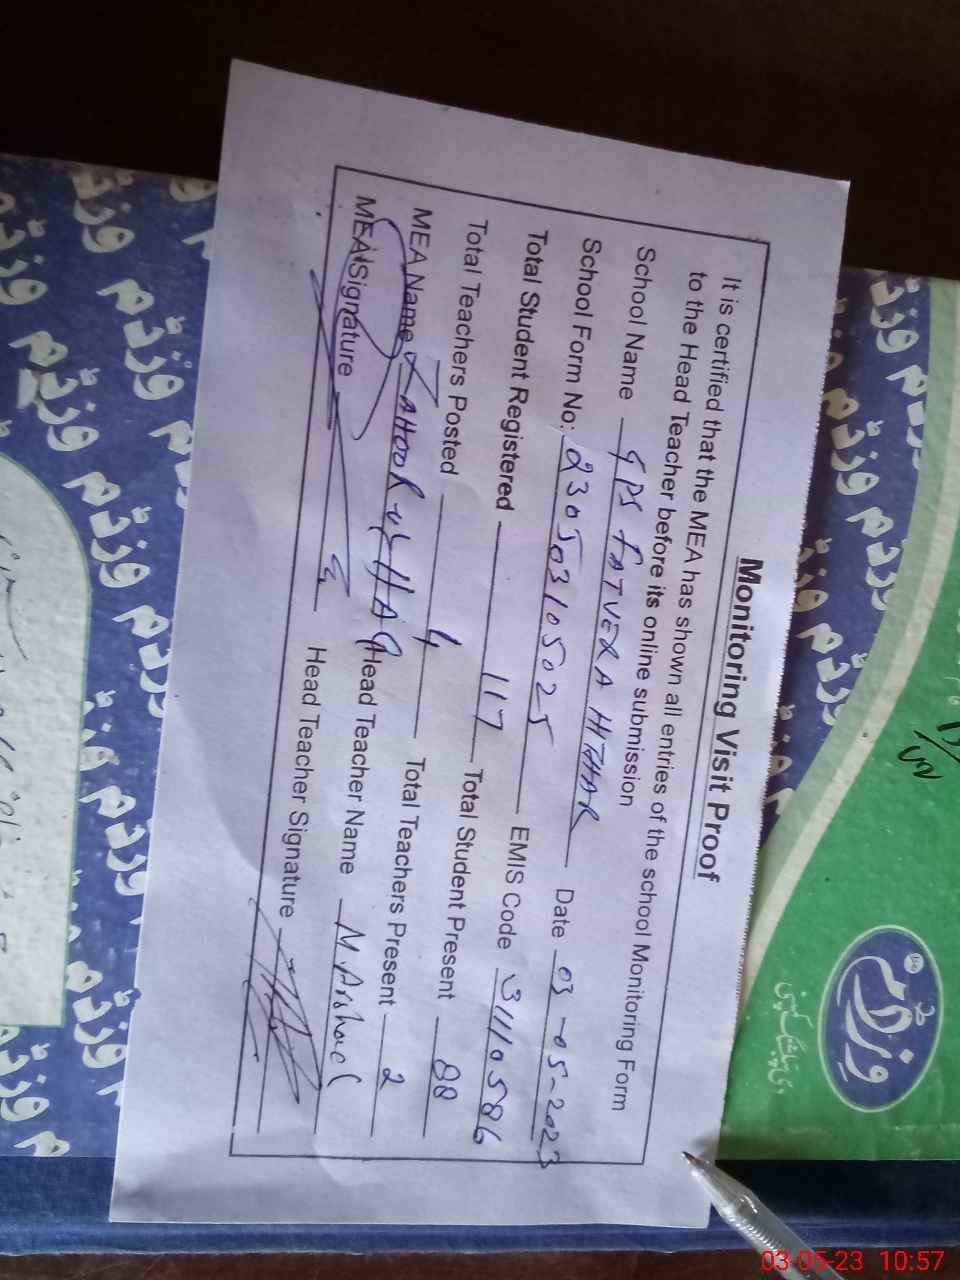 Monitoring Visit Proof
It is certified that the MEA has shown all entries of the school Monitoring Form
to the Head Teacher before its online submission
School Name GPS FATVERA HITHAR Date 03-05-2023
School Form No: 230503105025 EMIS Code 31110586
Total Student Registered 117 Total Student Present 88
Total Teachers Posted 4 Total Teachers Present 2
MEA Name ZAHOOR UL HAQ Head Teacher Name M Arshad
MEA Signature Head Teacher Signature
وزڈم
03-05-23 10:57